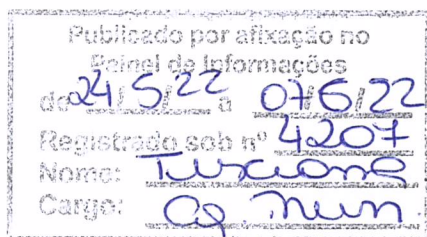 Publicado por afixação no
Painel de Informações
de 24/5/22 a 07/6/22
Registrado sob nº 4207
Nome:
Cargo: Ag mun.